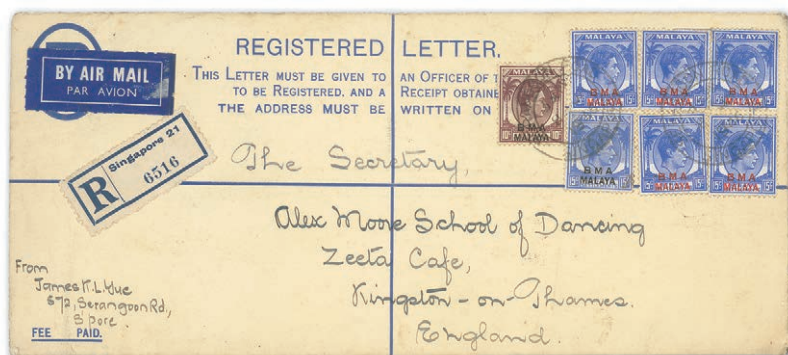 REGISTERED LETTER.
BY AIR MAIL
PAR AVION
THIS LETTER MUST BE GIVEN TO AN OFFICER OF
TO BE REGISTERED, AND A RECEIPT
THE ADDRESS MUST BE WRITTEN ON
MALAYA MALAYA MALAYA
BMA MALAYA BMA MALAYA BMA MALAYA
MALAYA
10c 10c
BMA MALAYA
BMA MALAYA BMA MALAYA BMA MALAYA
R
Singapore 21
6516
The Secretary,
Alex Moore School of Dancing
Zeeta Cafe,
Kingston-on-Thames.
England.
From
James K.L. Yue
672, Serangoon Rd.,
S'pore
FEE PAID.